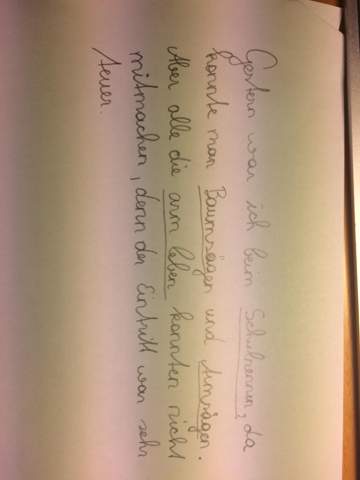 Gestern war ich beim Schulrennen, da
konnte man Baumsägen und Armsägen.
Aber alle die arm leben konnten nicht
mitmachen, denn der Eintritt war sehr
teuer.